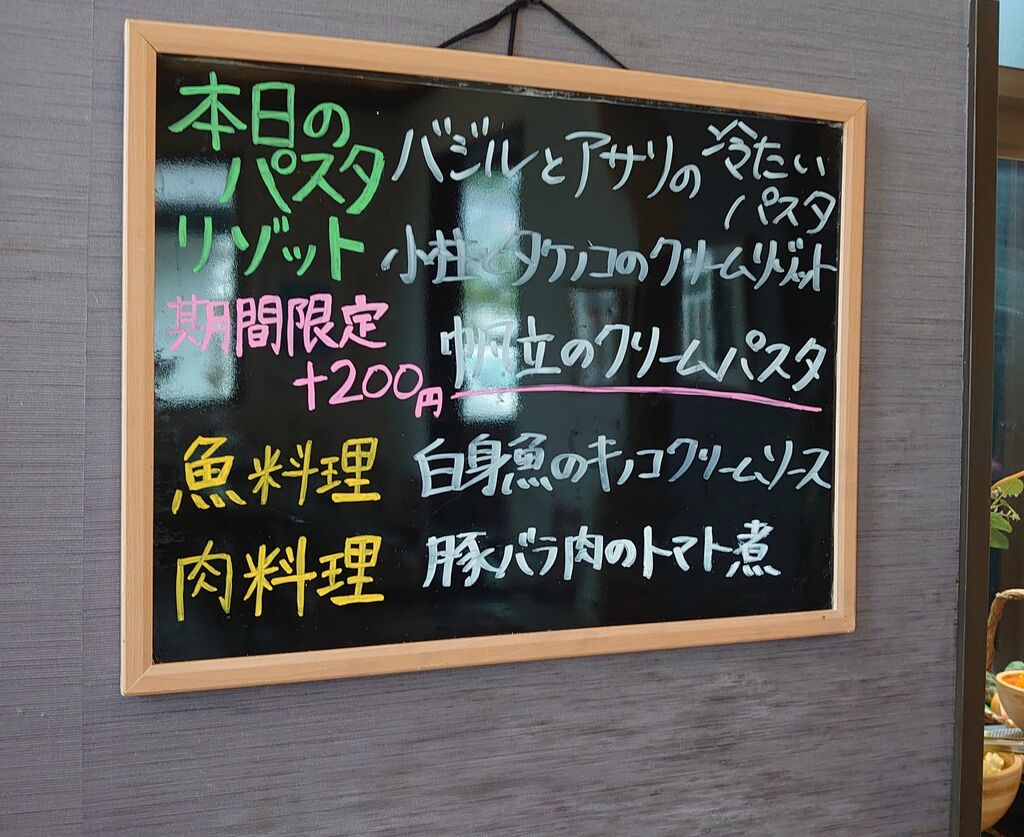 本日の
パスタ
バジルとアサリの冷たい
パスタ
リゾット
小柱とタケノコのクリームリゾット
期間限定
+200円
帆立のクリームパスタ
魚料理
白身魚のキノコクリームソース
肉料理
豚バラ肉のトマト煮